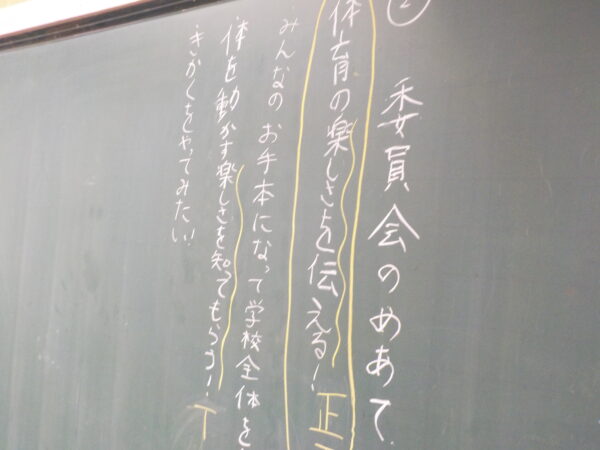 ②
委員会のめあて
体育の楽しさを伝える！
正
みんなのお手本になって学校全体を
体を動かす楽しさを知ってもらう！
きかくをやってみたい！